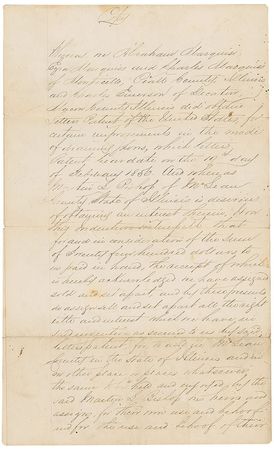 Copy
Whereas we Abraham Marquis
Ezra Marquis and Charles Marquis
of Monticello, Piatt County Illinois
and Charles Emerson of Decatur
Macon County Illinois did obtain
Letters Patent of the United States for
certain improvements in the mode
of, which Letters
Patent bear date on the day
of February 1886. And whereas
Martin L. Bishop of McLean
County State of Illinois is desirous
of obtaining an interest therein Now
this Indenture that
for and in consideration of the Sum
of Twenty five hundred dollars to
us paid in hand, the receipt of which
is hereby acknowledged we have assigned
sold and set apart and by these presents
do assign sell and set apart all the right
title and interest which we have in
said as secured to us by said
letters patent for and in McLean
County in the State of Illinois and in
no other place or places whatsoever
the same to be held and enjoyed by the
said Martin L Bishop his heirs and
assigns for their own use and behoof
and for the use and behoof of their